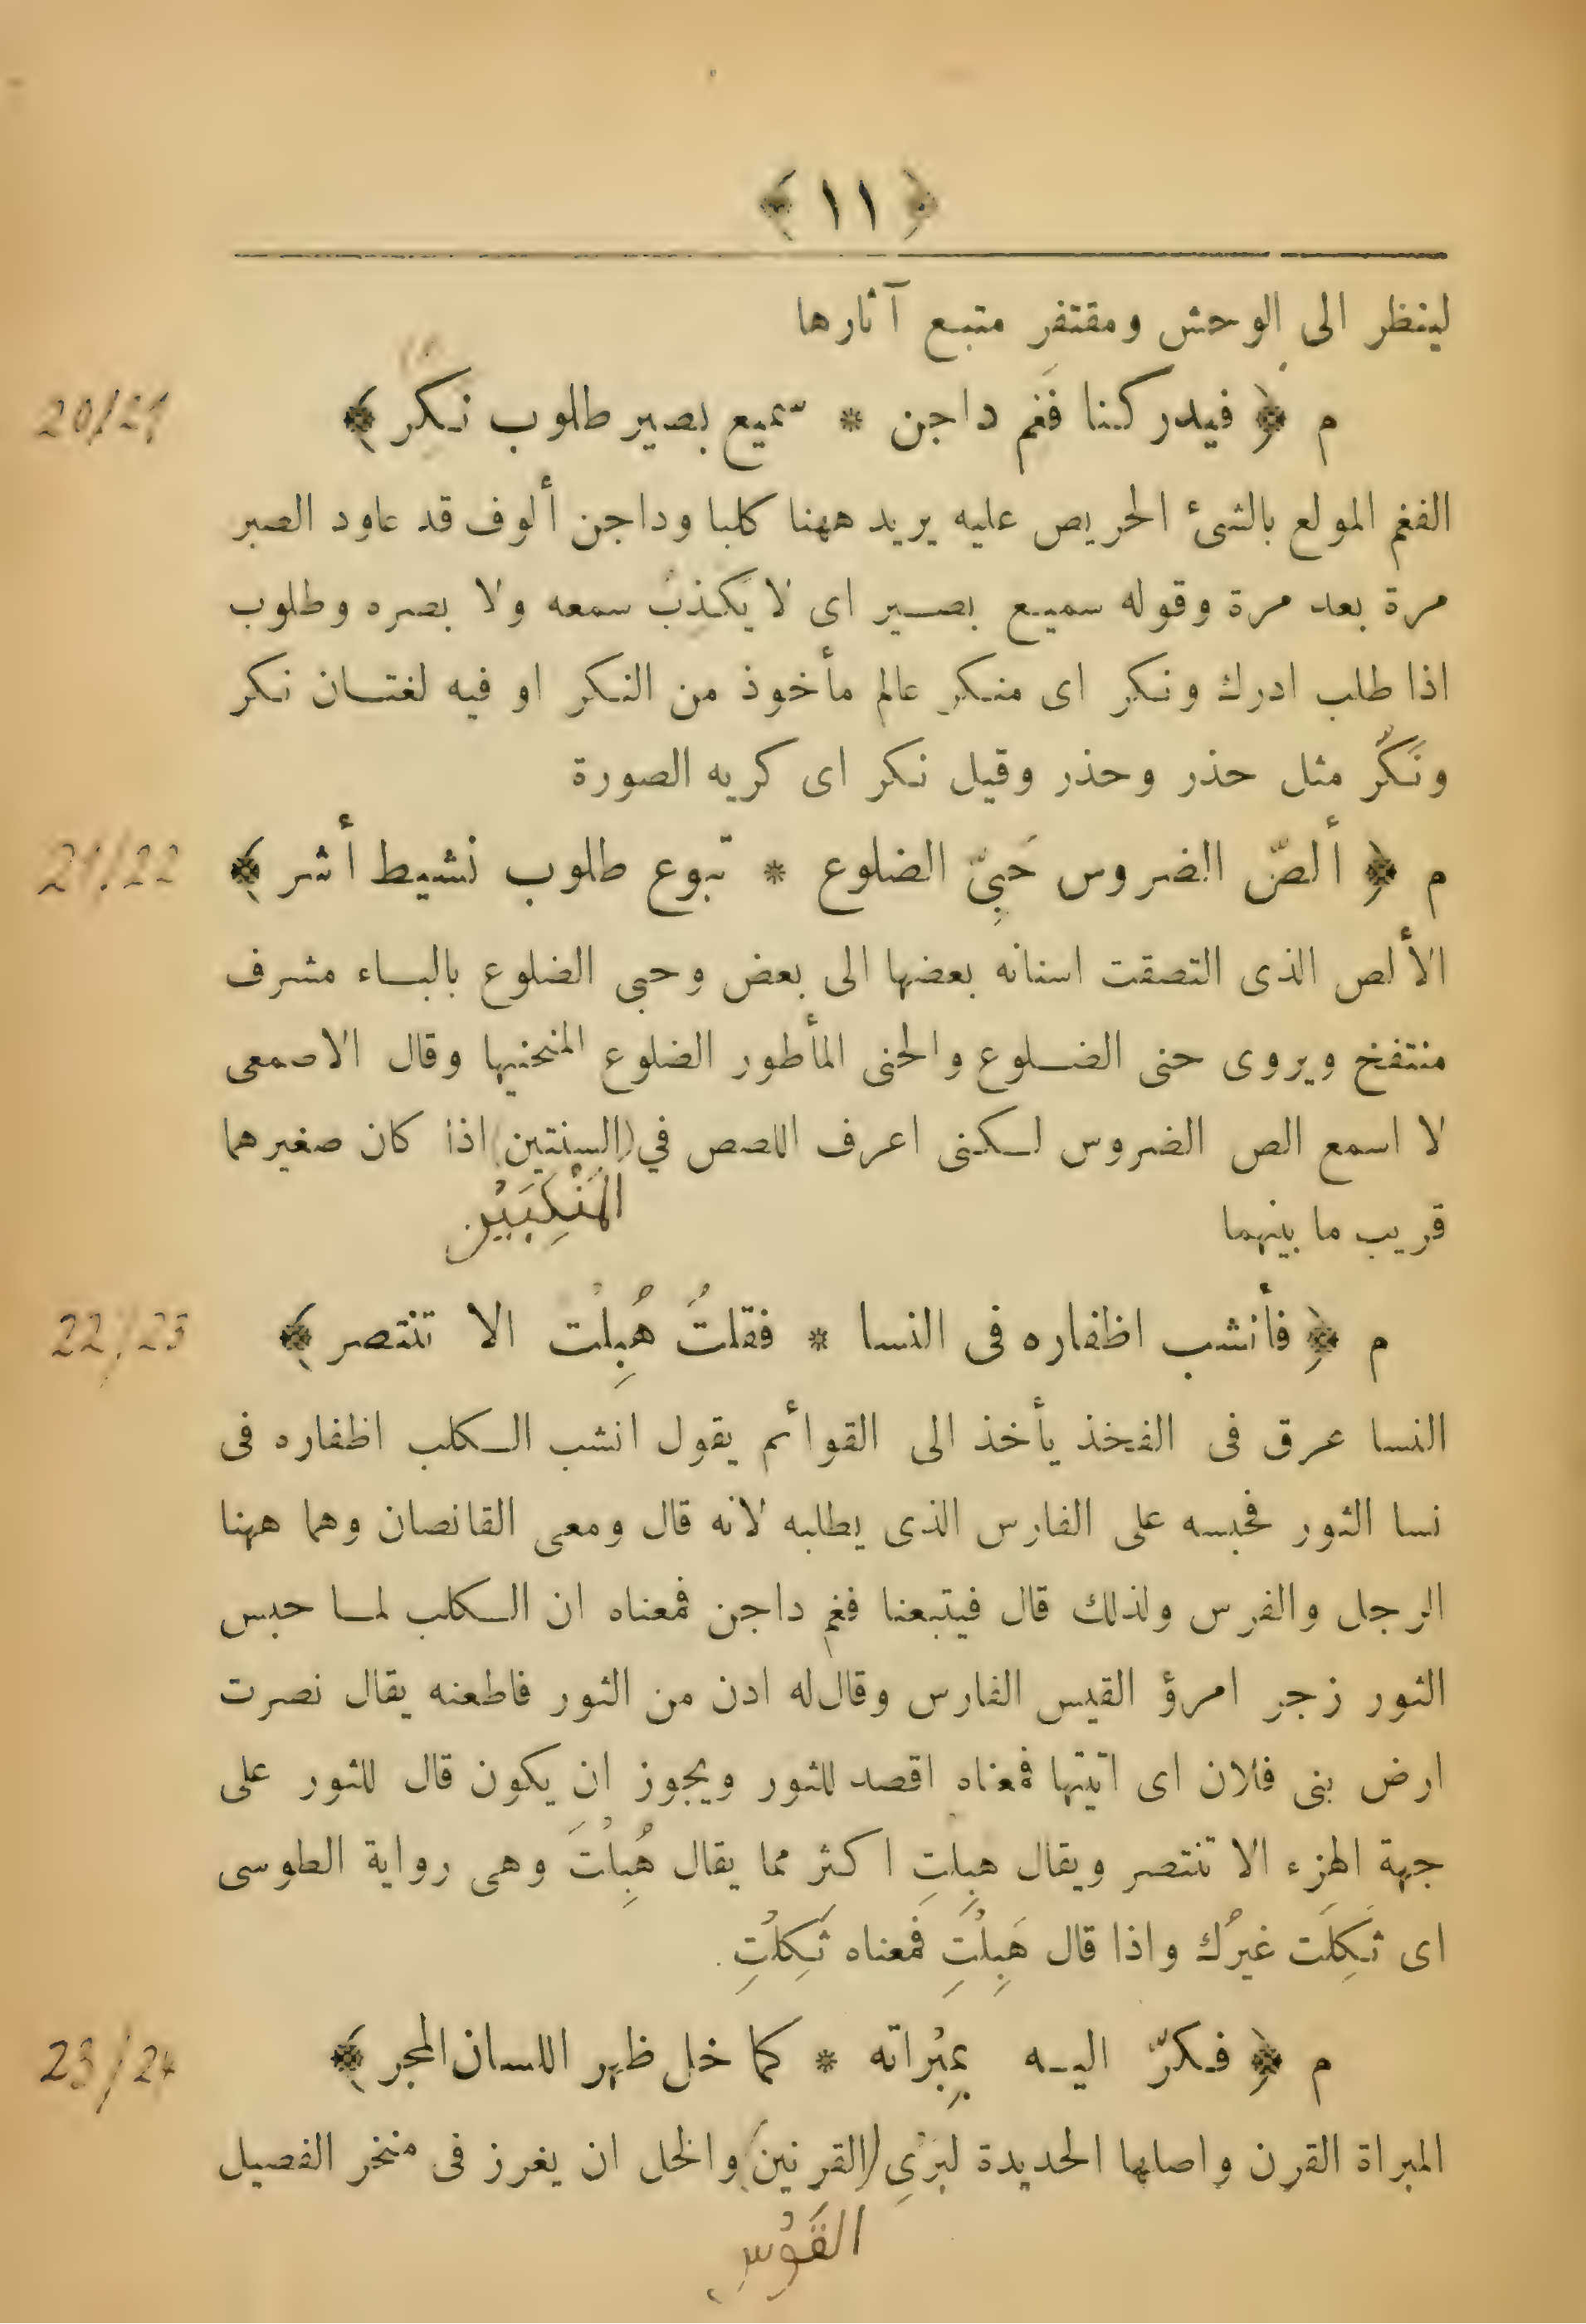 ﴿ ١١ ﴾
لينظر الى الوحش ومقتفر متبع آثارها
20/21
م ﴿ فيدركنا فَغم داجن * سميع بصير طلوب نكر ﴾
الفغم المولع بالشئ الحريص عليه يريد ههنا كلبا وداجن ألوف قد عاود الصبر
مرة بعد مرة وقوله سميع بصير اى لا يَكذب سمعه ولا بصره وطلوب
اذا طلب ادرك ونكر اى منكر عالم مأخوذ من النكر او فيه لغتان نكر
ونَكُر مثل حذر وحذر وقيل نكر اى كريه الصورة
21/22
م ﴿ ألصّ الضروس حَبِىّ الضلوع * تبوع طلوب نشيط أشر ﴾
الألص الذى التصقت اسنانه بعضها الى بعض وحبى الضلوع بالباء مشرف
منتفخ ويروى حنى الضلوع والحنى المأطور الضلوع المنحنيها وقال الاصمعى
لا اسمع الص الضروس لكنى اعرف اللصص في (السنتين) اذا كان صغيرهما
المَنْكِبَيْنِ
قريب ما بينهما
22/23
م ﴿ فأنشب اظفاره فى النسا * فقلتُ هُبِلْت الا تنتصر ﴾
النسا عرق فى الفخذ يأخذ الى القوائم يقول انشب الكلب اظفاره فى
نسا الثور فحبسه على الفارس الذى يطلبه لانه قال ومعى القانصان وهما ههنا
الرجل والفرس ولذلك قال فيتبعنا فغم داجن فمعناه ان الكلب لما حبس
الثور زجر امرؤ القيس الفارس وقال له ادن من الثور فاطعنه يقال نصرت
ارض بنى فلان اى اتيتها فمعناه اقصد للثور ويجوز ان يكون قال للثور على
جهة الهزء الا تنتصر ويقال هبِلتِ اكثر مما يقال هُبِلْتَ وهى رواية الطوسى
اى ثَكِلَت غيرُك واذا قال هَبِلْتِ فمعناه ثَكِلْتِ
23/24
م ﴿ فكرّ اليه بِمِبْراته * كما خل ظهر اللسان المجر ﴾
المبراة القرن واصلها الحديدة لبَرْىِ (القرنين) والخل ان يغرز فى منخر الفصيل
القَوْسِ